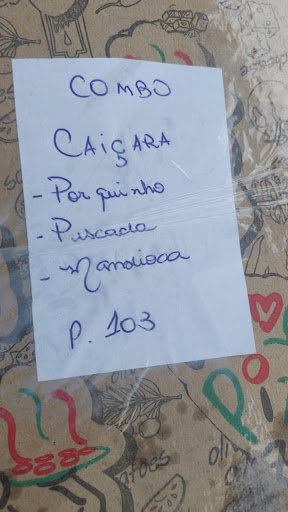 COMBO
CAIÇARA
- Porquinho
- Pescada
- Mandioca
P. 103